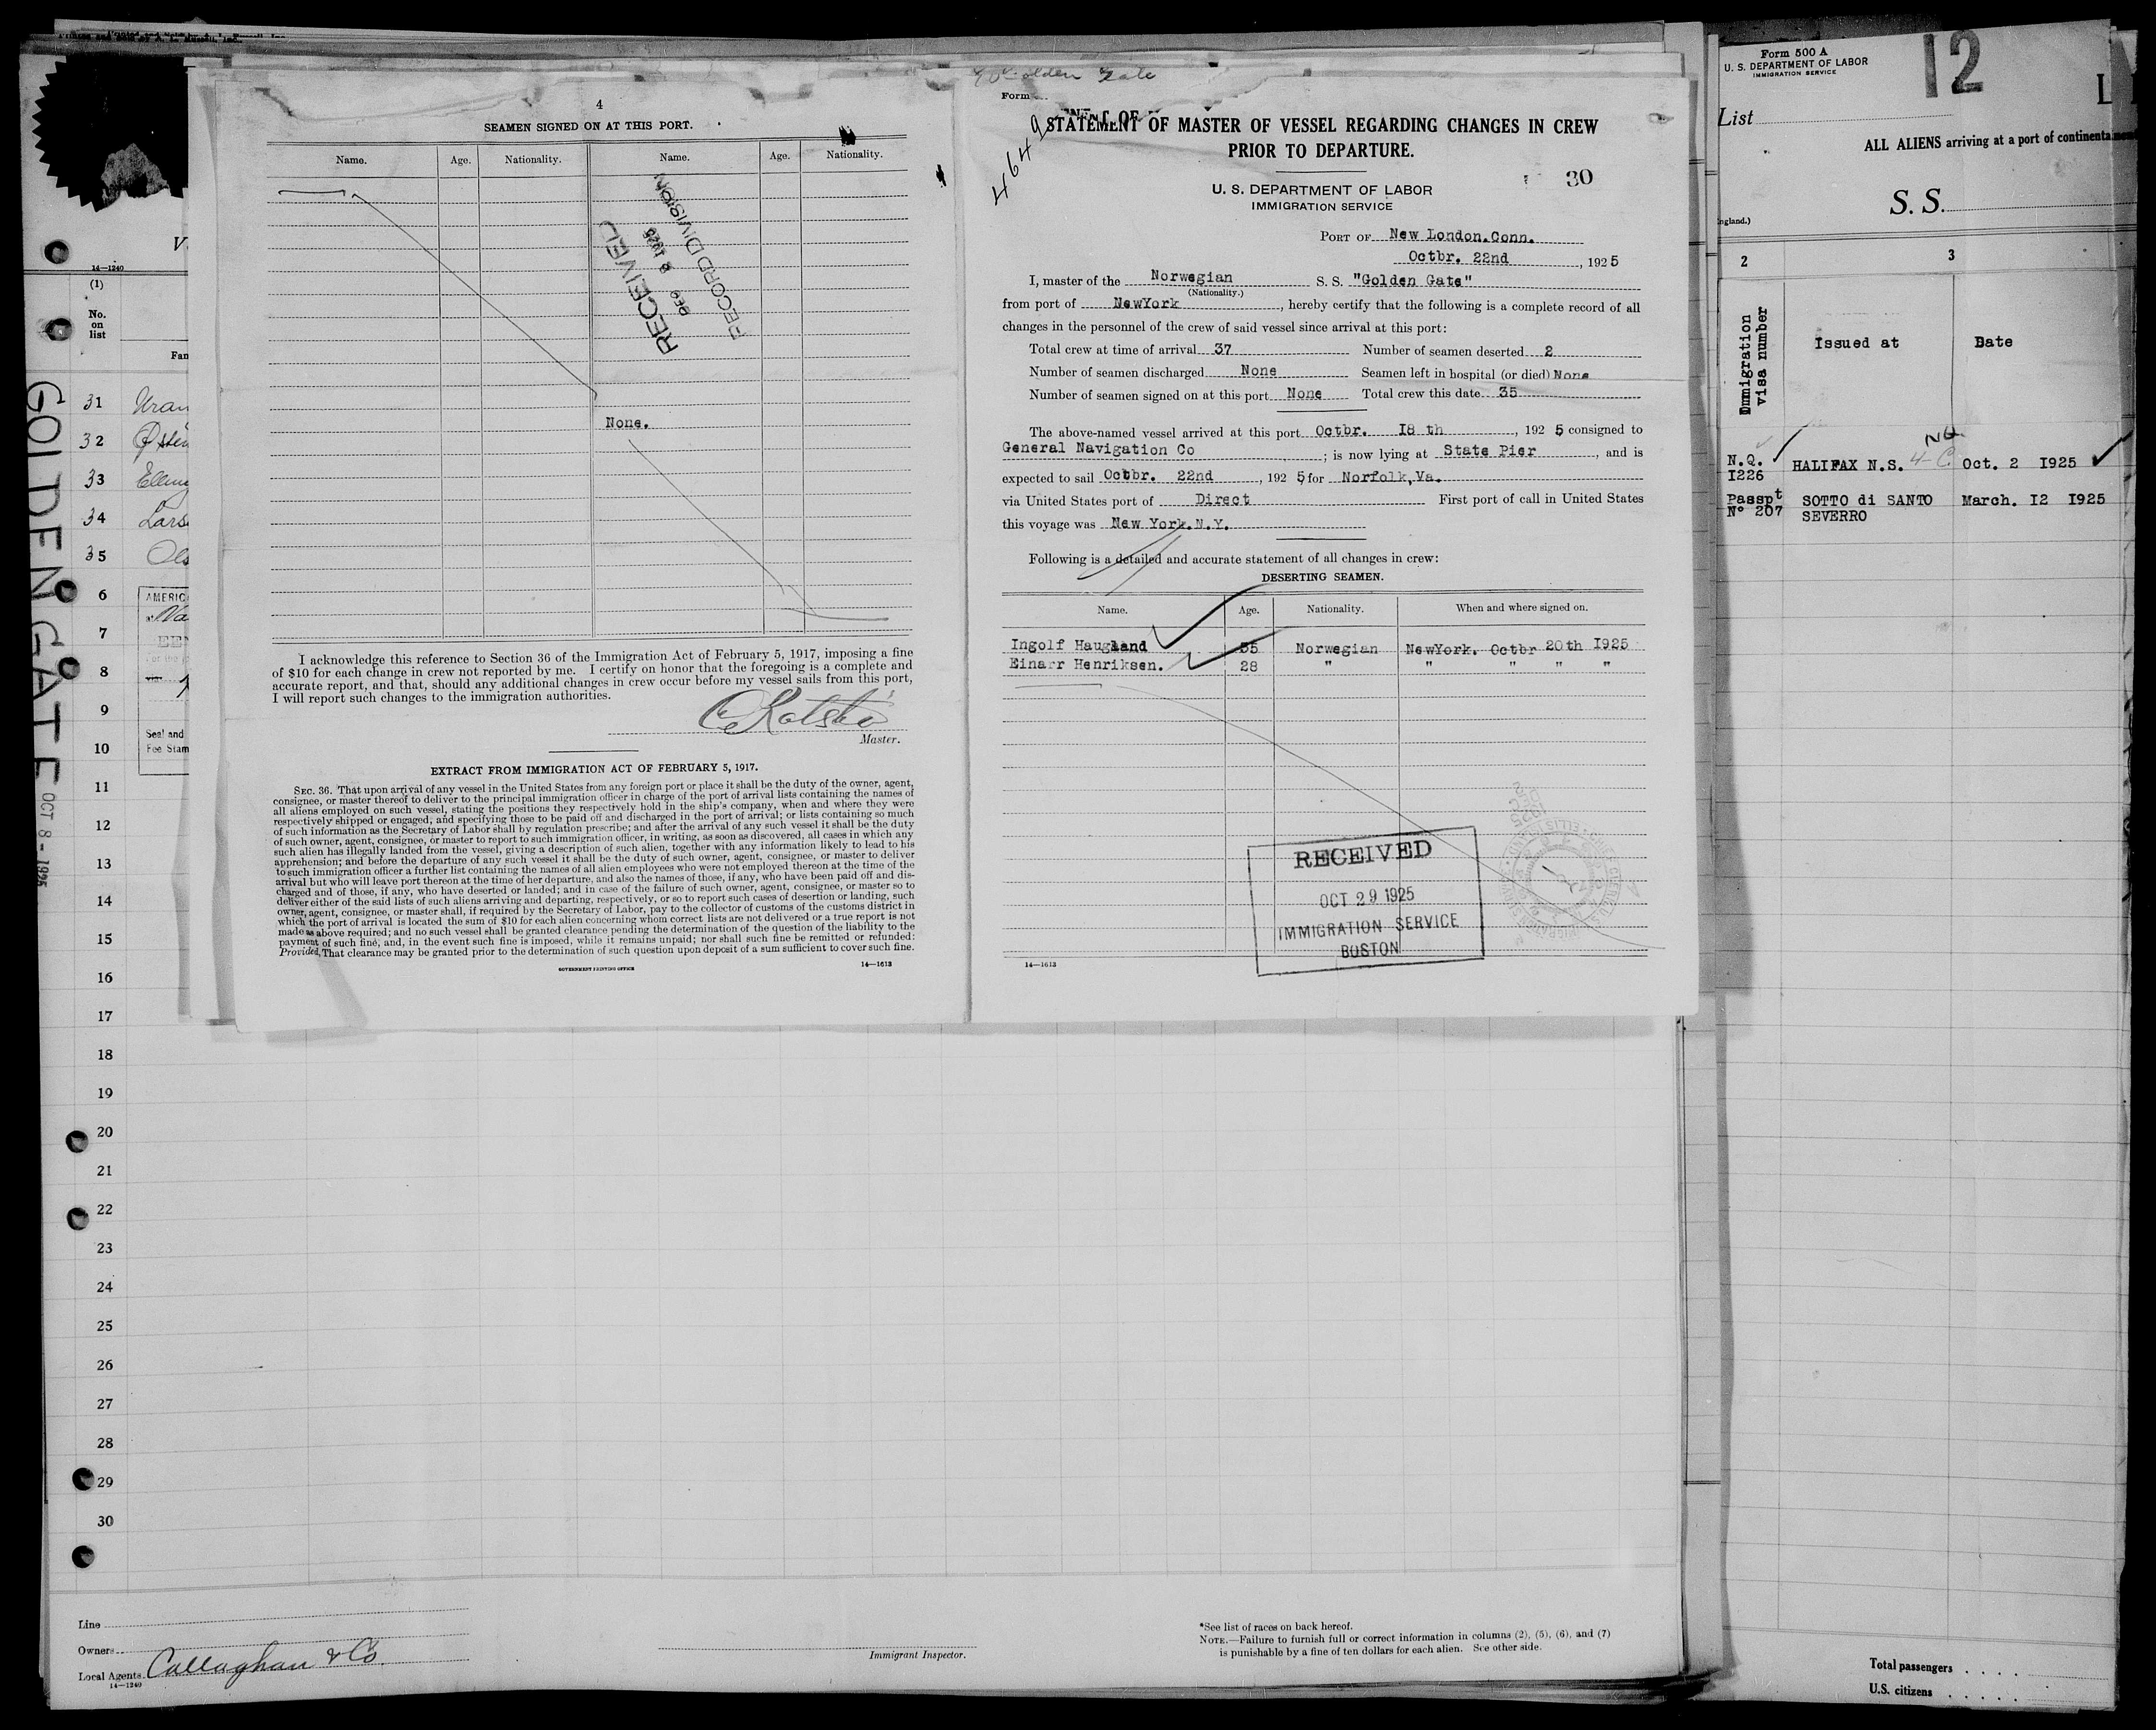 4
SEAMEN SIGNED ON AT THIS PORT.
Name. Age. Nationality. Name. Age. Nationality.
RECEIVED
RECORD DIVISION
None.
I acknowledge this reference to Section 36 of the Immigration Act of February 5, 1917, imposing a fine
of $10 for each change in crew not reported by me. I certify on honor that the foregoing is a complete and
accurate report, and that, should any additional changes in crew occur before my vessel sails from this port,
I will report such changes to the immigration authorities.
Master.
EXTRACT FROM IMMIGRATION ACT OF FEBRUARY 5, 1917.
SEC. 36. That upon arrival of any vessel in the United States from any foreign port or place it shall be the duty of the owner, agent,
consignee, or master thereof to deliver to the principal immigration officer in charge of the port of arrival lists containing the names of
all aliens employed on such vessel, stating the positions they respectively hold in the ship's company, when and where they were
respectively shipped or engaged, and specifying those to be paid off and discharged in the port of arrival; or lists containing so much
of such information as the Secretary of Labor shall by regulation prescribe; and after the arrival of any such vessel it shall be the duty
of such owner, agent, consignee, or master to report to such immigration officer, in writing, as soon as discovered, all cases in which any
such alien has illegally landed from the vessel, giving a description of such alien, together with any information likely to lead to his
apprehension; and before the departure of any such vessel it shall be the duty of such owner, agent, consignee, or master to deliver
to such immigration officer a further list containing the names of all alien employees who were not employed thereon at the time of the
arrival but who will leave port thereon at the time of her departure, and also the names of those, if any, who have been paid off and dis-
charged and of those, if any, who have deserted or landed; and in case of the failure of such owner, agent, consignee, or master so to
deliver either of the said lists of such aliens arriving and departing, respectively, or so to report such cases of desertion or landing, such
owner, agent, consignee, or master shall, if required by the Secretary of Labor, pay to the collector of customs of the customs district in
which the port of arrival is located the sum of $10 for each alien concerning whom correct lists are not delivered or a true report is not
made as above required; and no such vessel shall be granted clearance pending the determination of the question of the liability to the
payment of such fine, and, in the event such fine is imposed, while it remains unpaid; nor shall such fine be remitted or refunded:
Provided, That clearance may be granted prior to the determination of such question upon deposit of a sum sufficient to cover such fine.
GOVERNMENT PRINTING OFFICE 14—1613
Golden Gate
Form
4649
STATEMENT OF MASTER OF VESSEL REGARDING CHANGES IN CREW
PRIOR TO DEPARTURE.
30
U. S. DEPARTMENT OF LABOR
IMMIGRATION SERVICE
PORT OF New London.Conn.
Octbr. 22nd, 1925
I, master of the Norwegian S. S. "Golden Gate"
(Nationality.)
from port of NewYork, hereby certify that the following is a complete record of all
changes in the personnel of the crew of said vessel since arrival at this port:
Total crew at time of arrival 37 Number of seamen deserted 2
Number of seamen discharged None Seamen left in hospital (or died) None
Number of seamen signed on at this port None Total crew this date 35
The above-named vessel arrived at this port Octbr. I8 th, 192 5 consigned to
General Navigation Co; is now lying at State Pier, and is
expected to sail Octbr. 22nd, 192 5 for Norfolk,Va.
via United States port of Direct First port of call in United States
this voyage was New York.N.Y.
Following is a detailed and accurate statement of all changes in crew:
DESERTING SEAMEN.
Name. Age. Nationality. When and where signed on.
Ingolf Haugland 35 Norwegian NewYork. Octbr 20th I925
Einarr Henriksen. 28 " " " " "
RECEIVED
OCT 29 1925
IMMIGRATION SERVICE
BOSTON
14—1613
GOLDEN GATE
OCT 8 - 1925
14—1240
(1)
No.
on
list
31
32
33
34
35
6
7
8
9
10
Seal and
Fee Stam
11
12
13
14
15
16
17
18
19
20
21
22
23
24
25
26
27
28
29
30
Line
Owners
Local Agents Callaghan & Co.
14—1240
Immigrant Inspector.
*See list of races on back hereof.
NOTE.—Failure to furnish full or correct information in columns (2), (5), (6), and (7)
is punishable by a fine of ten dollars for each alien. See other side.
Form 500 A
U. S. DEPARTMENT OF LABOR
IMMIGRATION SERVICE
12
List
ALL ALIENS arriving at a port of continenta
S. S.
ngland.)
2 3
Immigration
visa number
Issued at Date
N.Q.
I226 HALIFAX N.S. Oct. 2 I925
Passpt
Nº 207 SOTTO di SANTO
SEVERRO March. I2 I925
Total passengers
U.S. citizens